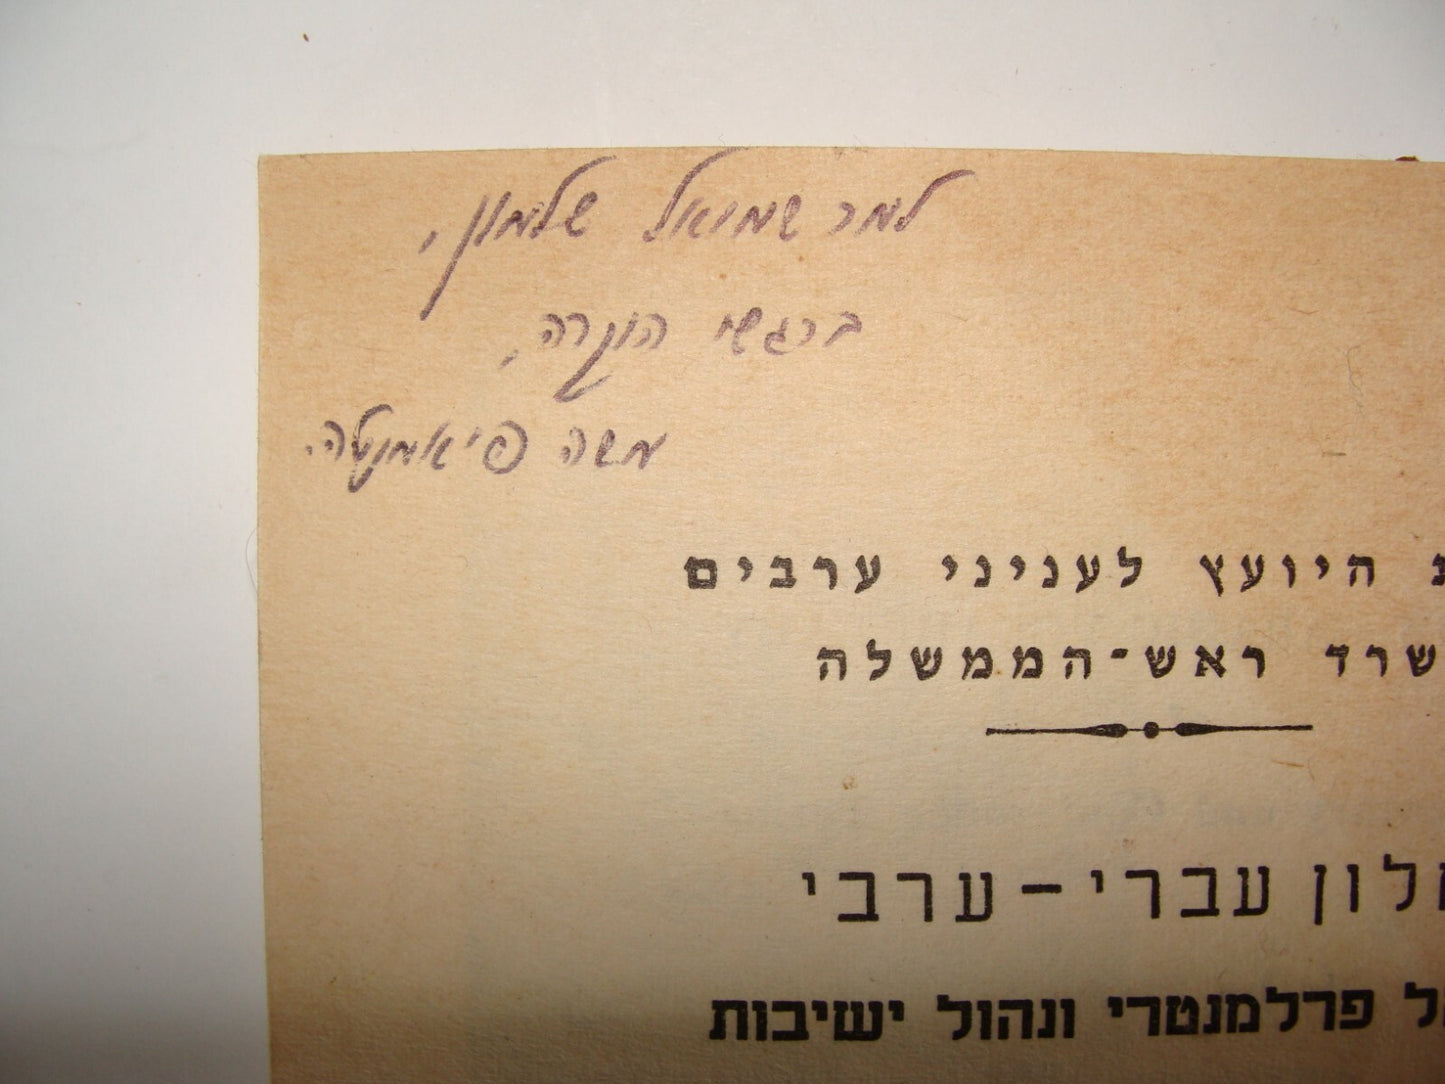 למר שמואל שלמון,
ברגשי הוקרה,
משה פיאמנטה.
היועץ לעניני ערבים
שרד ראש-הממשלה
מלון עברי – ערבי
ל פרלמנטרי ונהול ישיבות